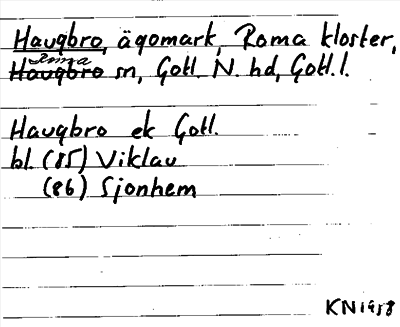 Haugbro, ägomark, Roma kloster,
Roma
Haugbro sn, Gotl. N. hd, Gotl. l.
Haugbro ek Gotl.
bl. (85) Viklau
(86) Sjonhem
KN 1958